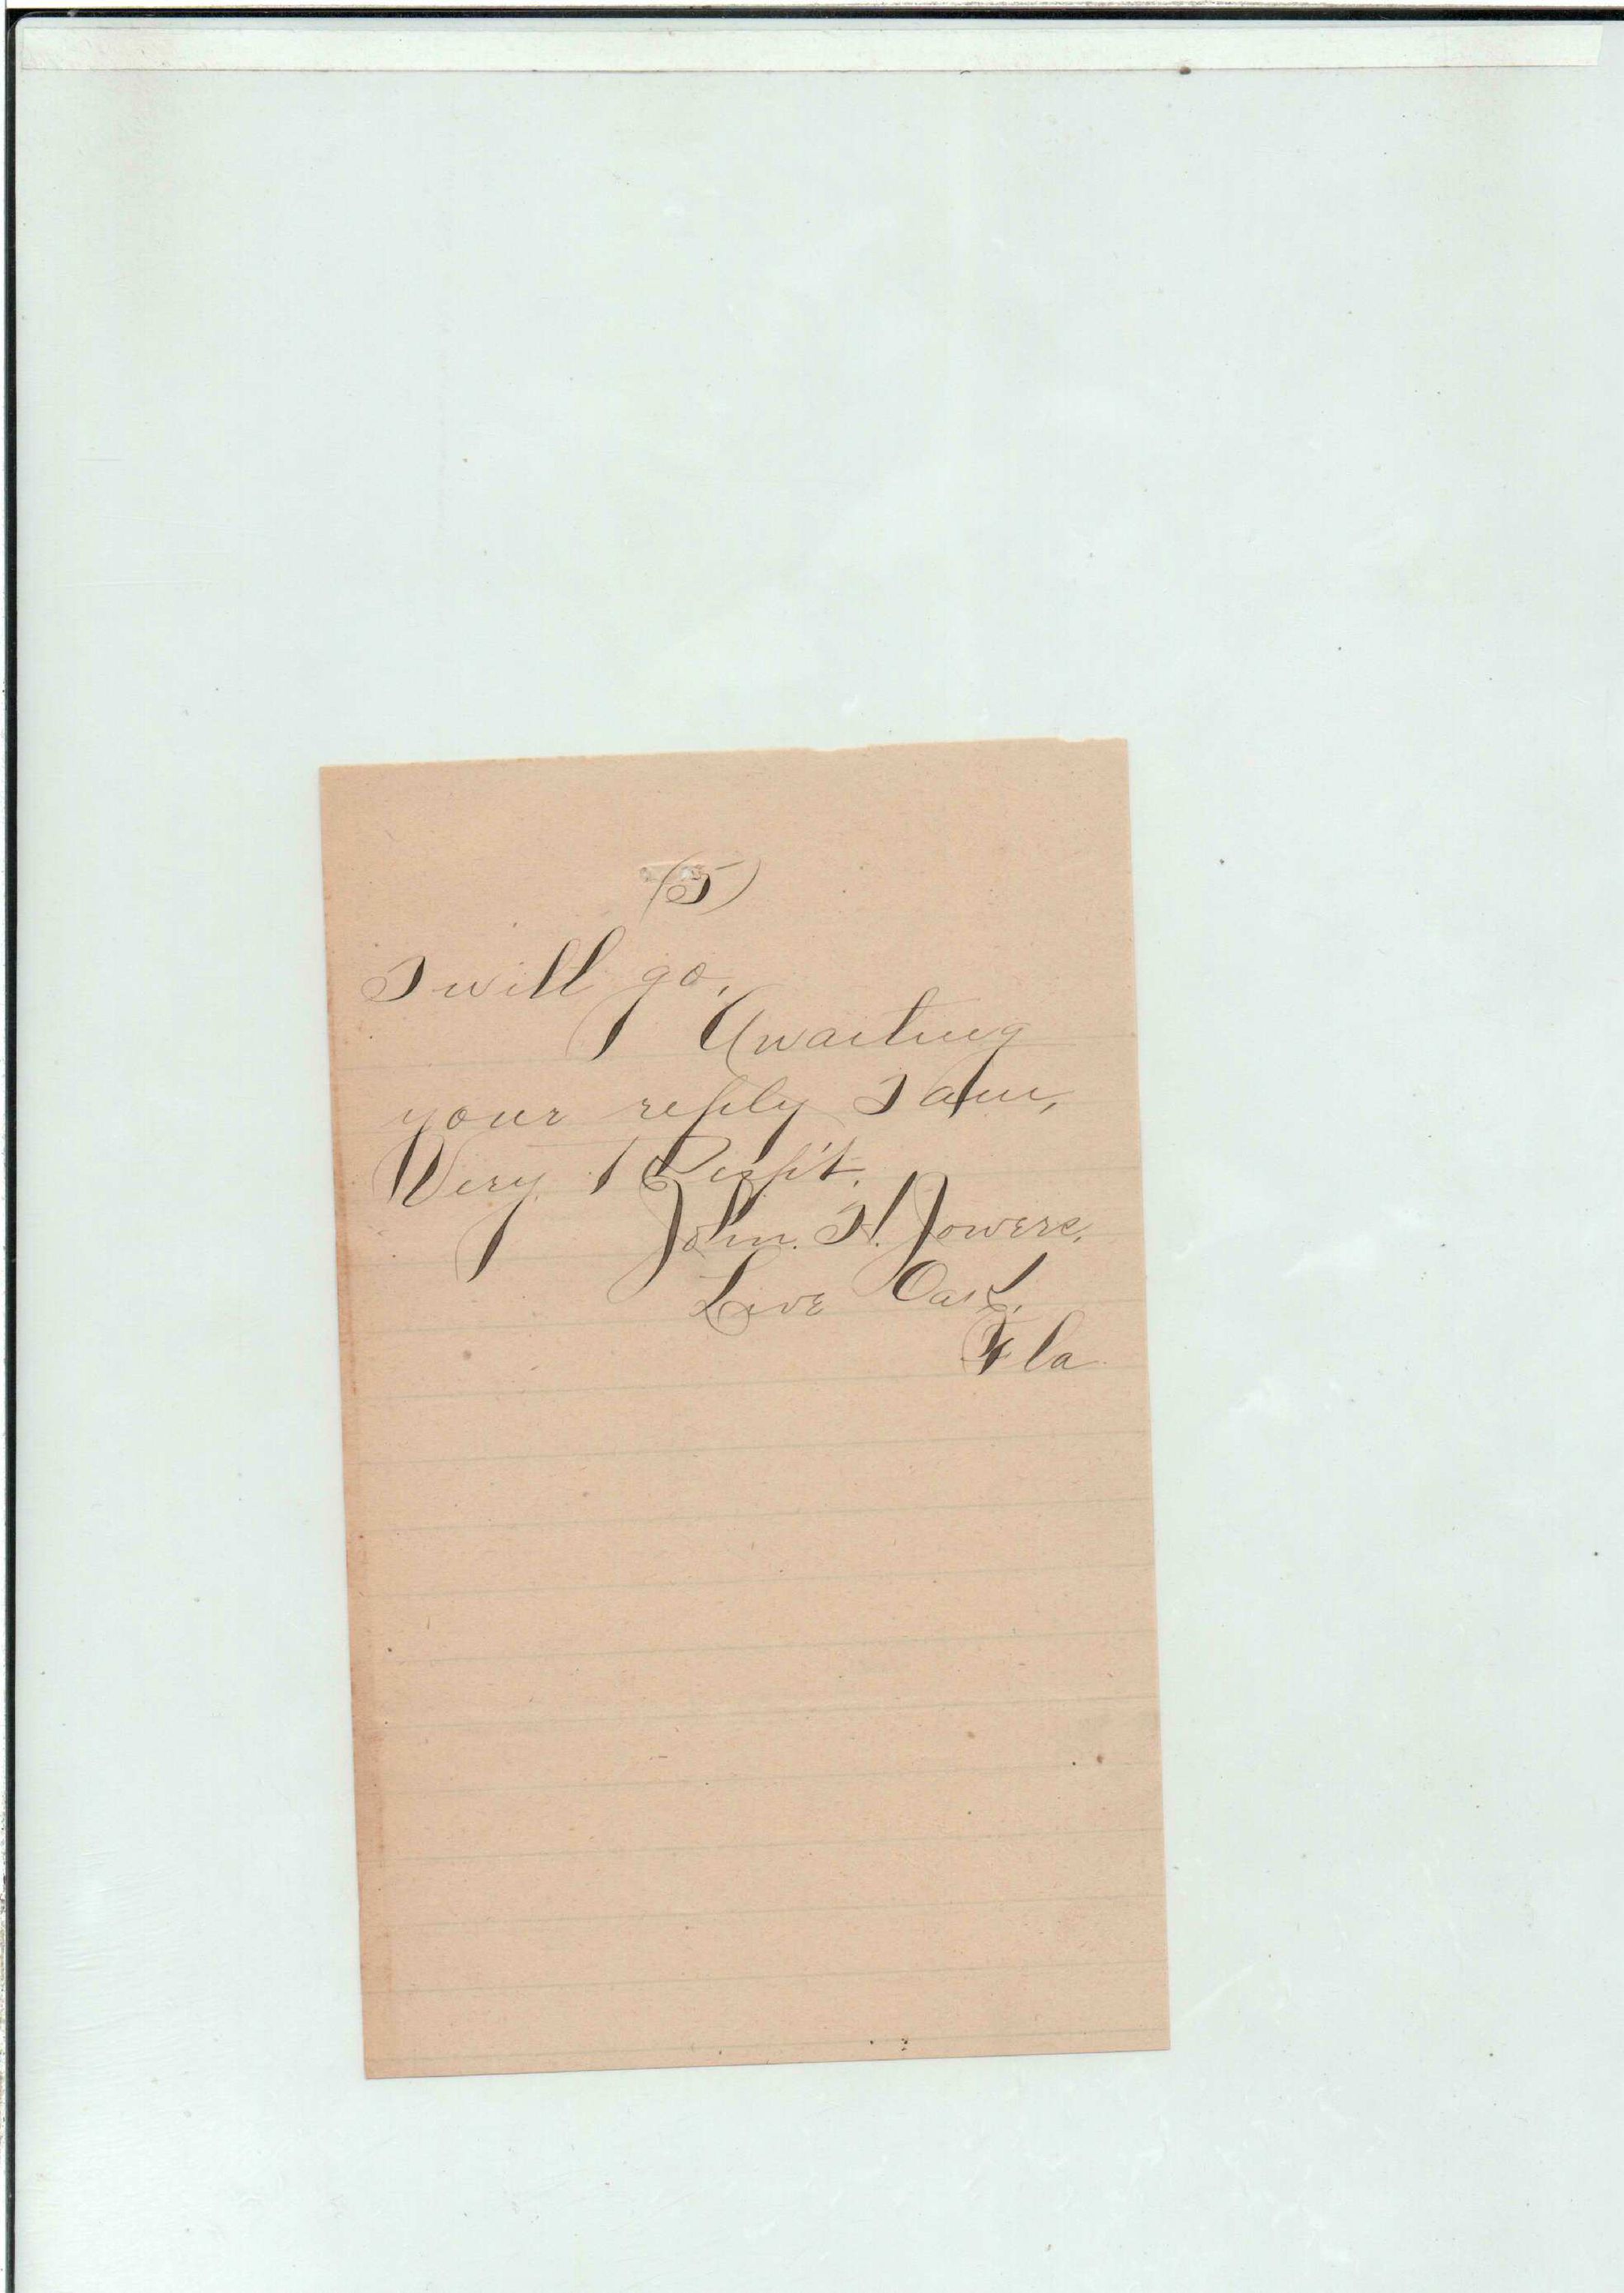 (5)
I will go,
Awaiting
your reply I am,
Very Respt.
John. H. Jowers,
Live Oak,
Fla